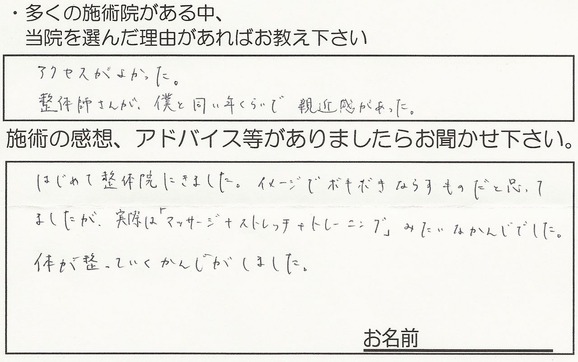 ・多くの施術院がある中、
当院を選んだ理由があればお教え下さい
アクセスがよかった。
整体師さんが、僕と同い年くらいで 親近感があった。
施術の感想、アドバイス等がありましたらお聞かせ下さい。
はじめて整体院にきました。イメージでボキボキならすものだと思って
ましたが、実際は「マッサージ+ストレッチ+トレーニング」みたいなかんじでした。
体が整っていくかんじがしました。
お名前